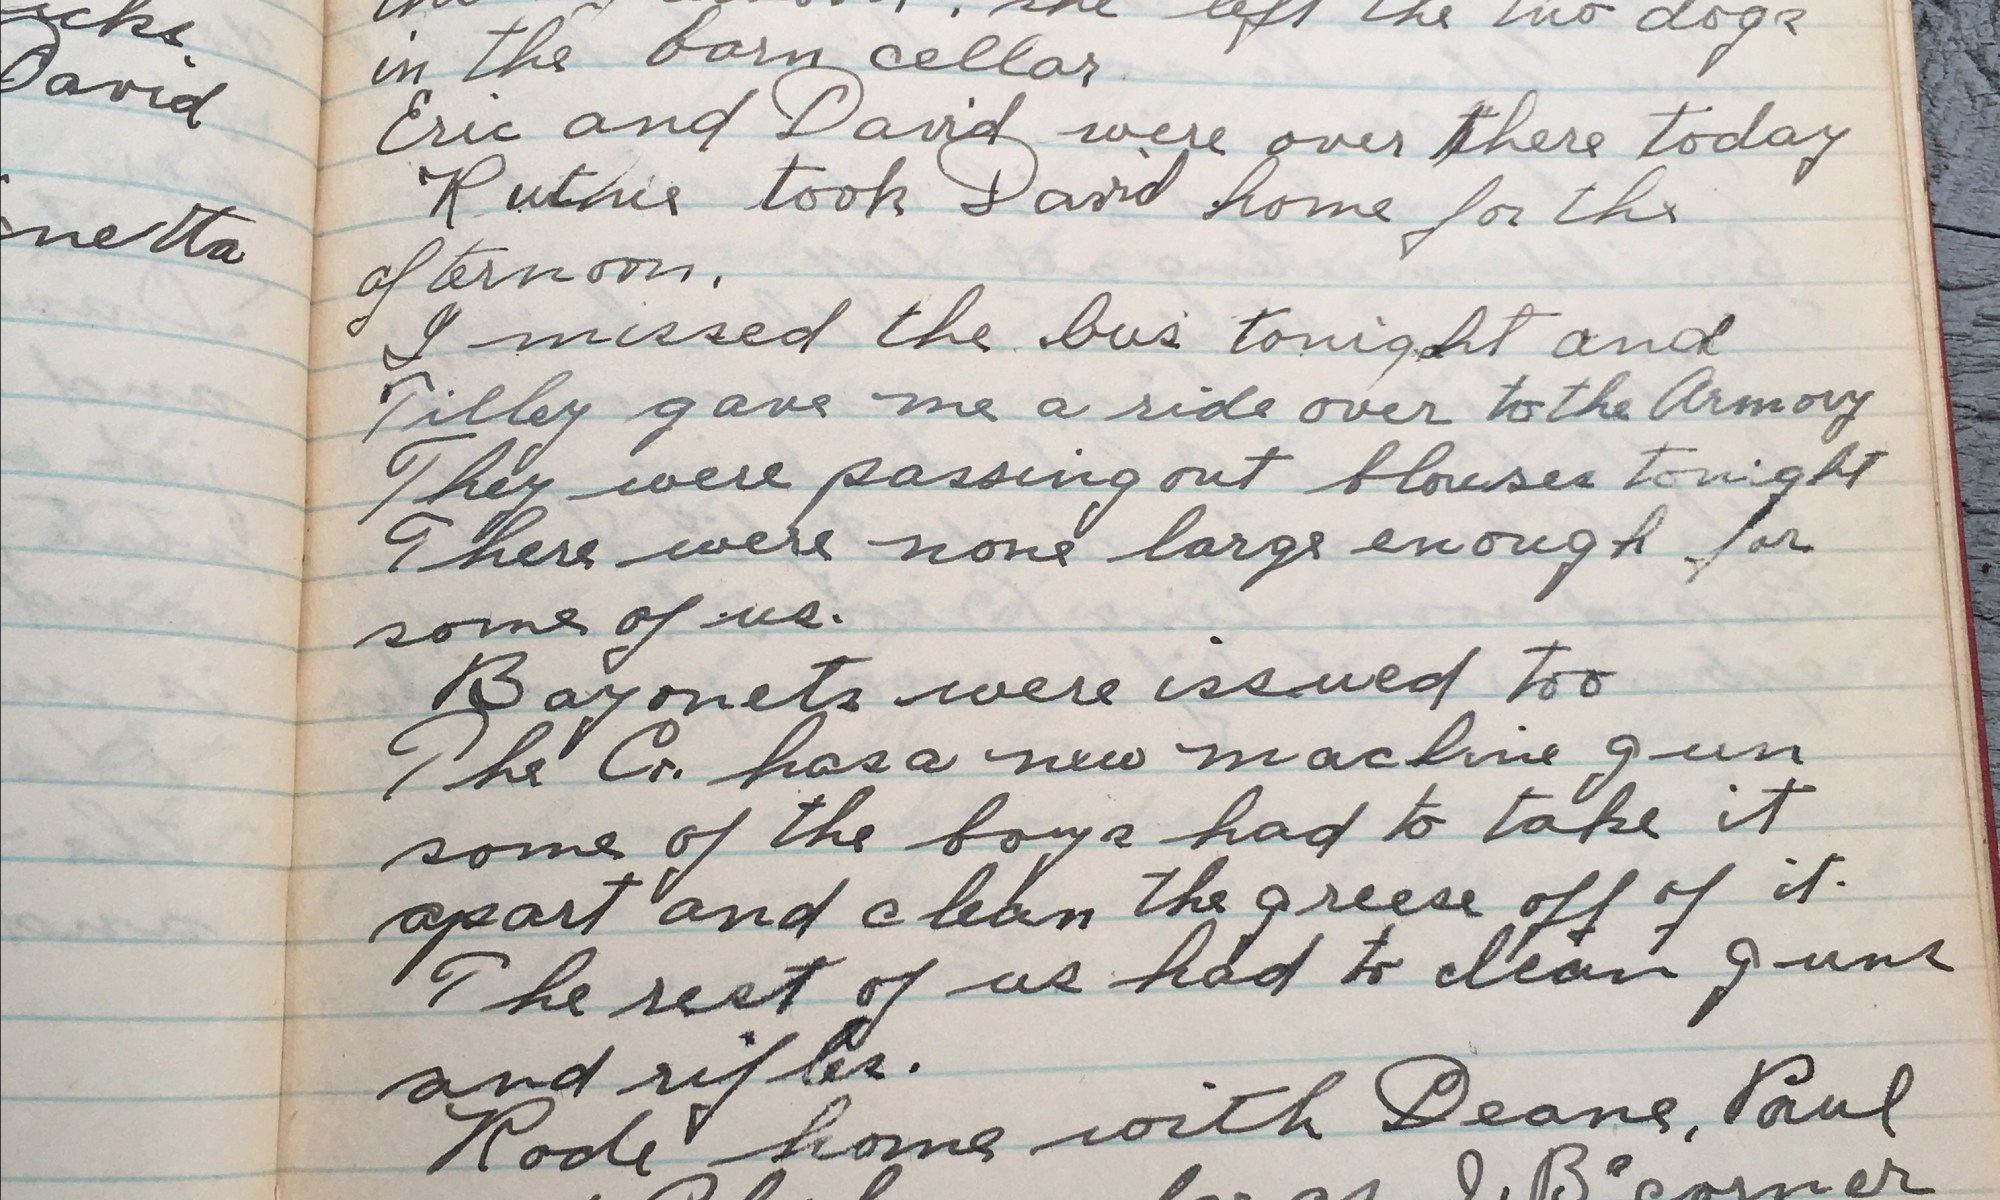 icks
David
netta
she left the two dogs
in the barn cellar
Eric and David were over there today
Ruthie took David home for the
afternoon.
I missed the bus tonight and
Tilley gave me a ride over to the Armory
They were passing out blouses tonight
There were none large enough for
some of us.
Bayonets were issued too
The Co. has a new machine gun
some of the boys had to take it
apart and clean the greese off of it.
The rest of us had to clean guns
and rifles.
Rode home with Deane, Paul
J. B's corner